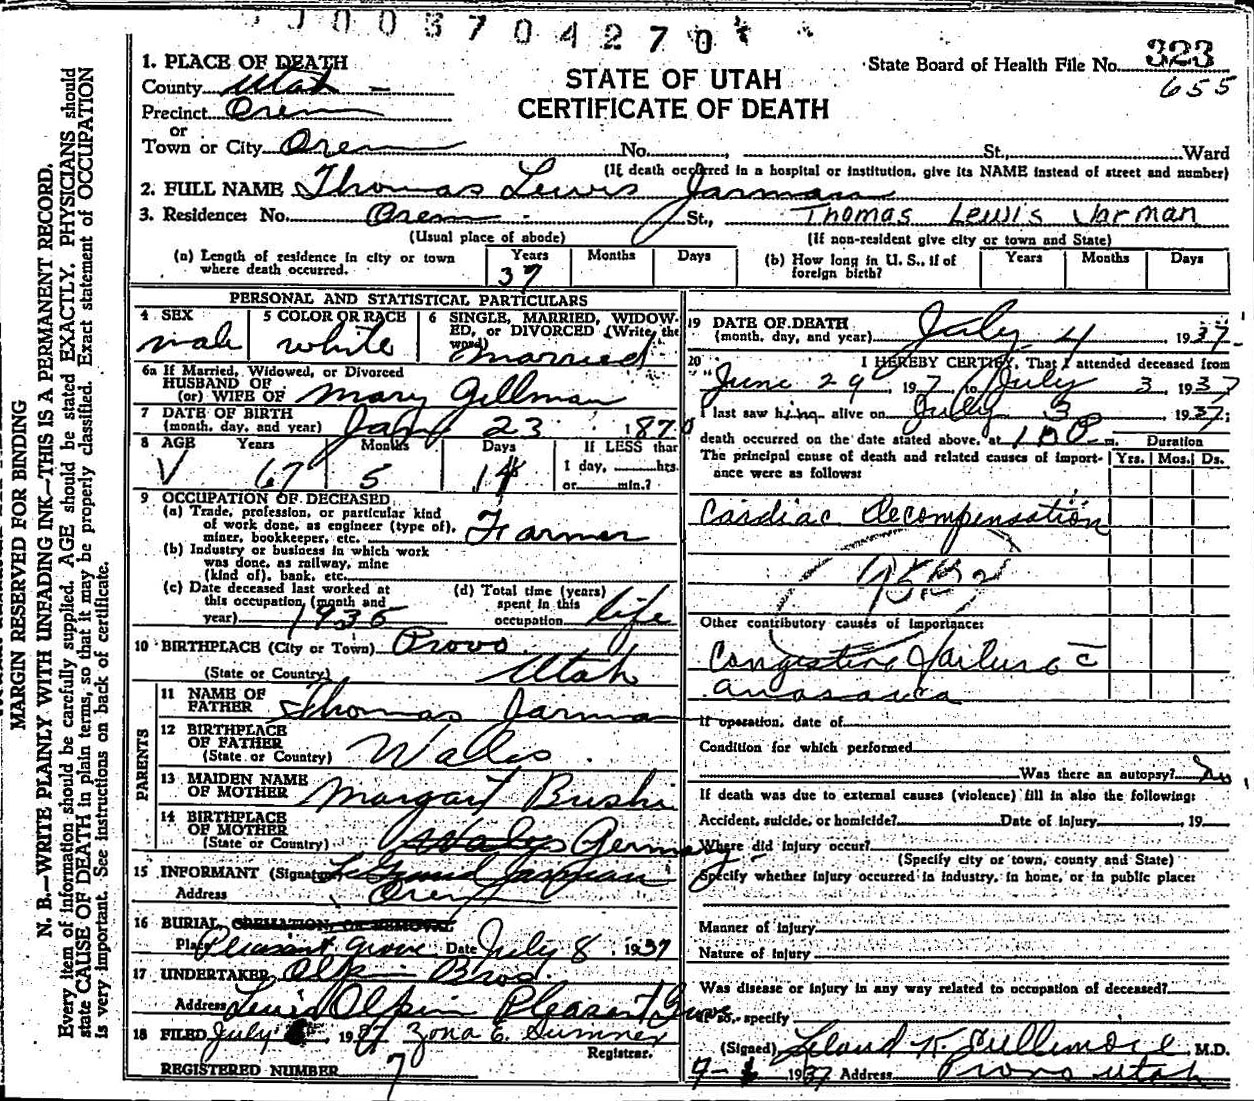 003704270
1. PLACE OF DEATH
County Utah
Precinct Orem
or
Town or City Orem No. , St., Ward
STATE OF UTAH
CERTIFICATE OF DEATH
State Board of Health File No. 323
655
(If death occurred in a hospital or institution, give its NAME instead of street and number)
2. FULL NAME Thomas Lewis Jarman
3. Residence: No. Orem St., Thomas Lewis Jarman
(Usual place of abode) (If non-resident give city or town and State)
(a) Length of residence in city or town where death occurred. Years 37 Months Days
(b) How long in U. S., if of foreign birth? Years Months Days
PERSONAL AND STATISTICAL PARTICULARS
4 SEX male
5 COLOR OR RACE white
6 SINGLE, MARRIED, WIDOWED, or DIVORCED (Write the word) married
6a If Married, Widowed, or Divorced
HUSBAND OF
(or) WIFE OF Mary Gillman
7 DATE OF BIRTH
(month, day, and year) Jan 23 1870
8 AGE Years 67 Months 5 Days 11 If LESS than 1 day, hrs. or min.?
9 OCCUPATION OF DECEASED
(a) Trade, profession, or particular kind of work done, as engineer (type of), miner, bookkeeper, etc. Farmer
(b) Industry or business in which work was done, as railway, mine (kind of), bank, etc.
(c) Date deceased last worked at this occupation (month and year) 1936
(d) Total time (years) spent in this occupation life
10 BIRTHPLACE (City or Town) Provo
(State or Country) Utah
PARENTS
11 NAME OF FATHER Thomas Jarman
12 BIRTHPLACE OF FATHER
(State or Country) Wales
13 MAIDEN NAME OF MOTHER Margart Bushi
14 BIRTHPLACE OF MOTHER
(State or Country) Wales Germany
15 INFORMANT (Signature) LeGrand Jarman
Address Orem
16 BURIAL, CREMATION, OR REMOVAL
Place Pleasant Grove Date July 8, 1937
17 UNDERTAKER Olpin Bros.
Address Lewis Olpin Pleasant Grove
18 FILED July , 1937 Zona E. Sumner
Registrar.
REGISTERED NUMBER 7
19 DATE OF DEATH
(month, day, and year) July 4 1937
20 I HEREBY CERTIFY, That I attended deceased from
June 29 1937 to July 3 1937
I last saw him alive on July 3 1937;
death occurred on the date stated above, at P m. Duration
The principal cause of death and related causes of importance were as follows: Yrs. Mos. Ds.
Cardiac Decompensation
Other contributory causes of importance:
Congestive failure c̄
anasarca
If operation, date of
Condition for which performed
Was there an autopsy? No
If death was due to external causes (violence) fill in also the following:
Accident, suicide, or homicide? Date of injury , 19
Where did injury occur?
(Specify city or town, county and State)
Specify whether injury occurred in industry, in home, or in public place:
Manner of injury
Nature of injury
Was disease or injury in any way related to occupation of deceased?
If so, specify
(Signed) Leland K. Cullimore M.D.
1937 Address Provo Utah
MARGIN RESERVED FOR BINDING
N. B.—WRITE PLAINLY WITH UNFADING INK—THIS IS A PERMANENT RECORD.
Every item of information should be carefully supplied. AGE should be stated EXACTLY. PHYSICIANS should
state CAUSE OF DEATH in plain terms, so that it may be properly classified. Exact statement of OCCUPATION
is very important. See instructions on back of certificate.